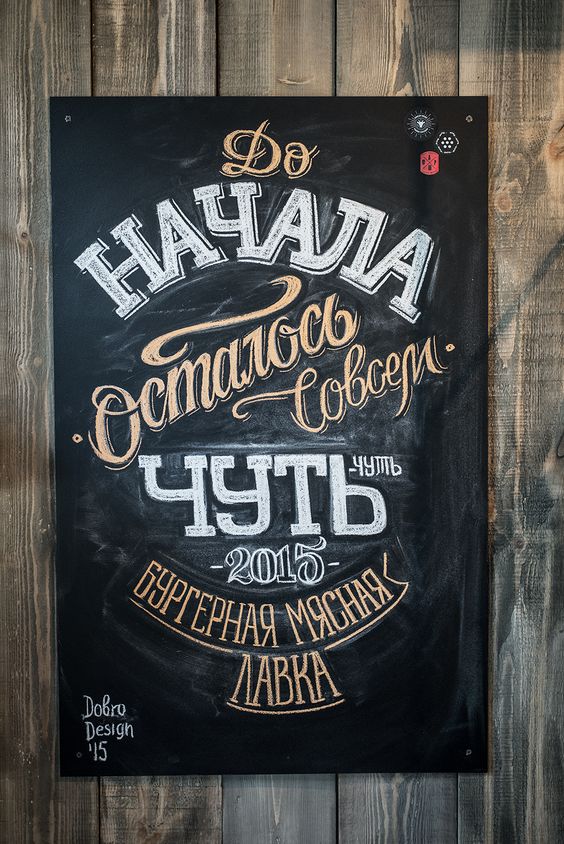 До
НАЧАЛА
Осталось
Совсем
ЧУТЬ
-ЧУТЬ
-2015-
БУРГЕРНАЯ МЯСНАЯ
ЛАВКА
Dobro
Design
'15